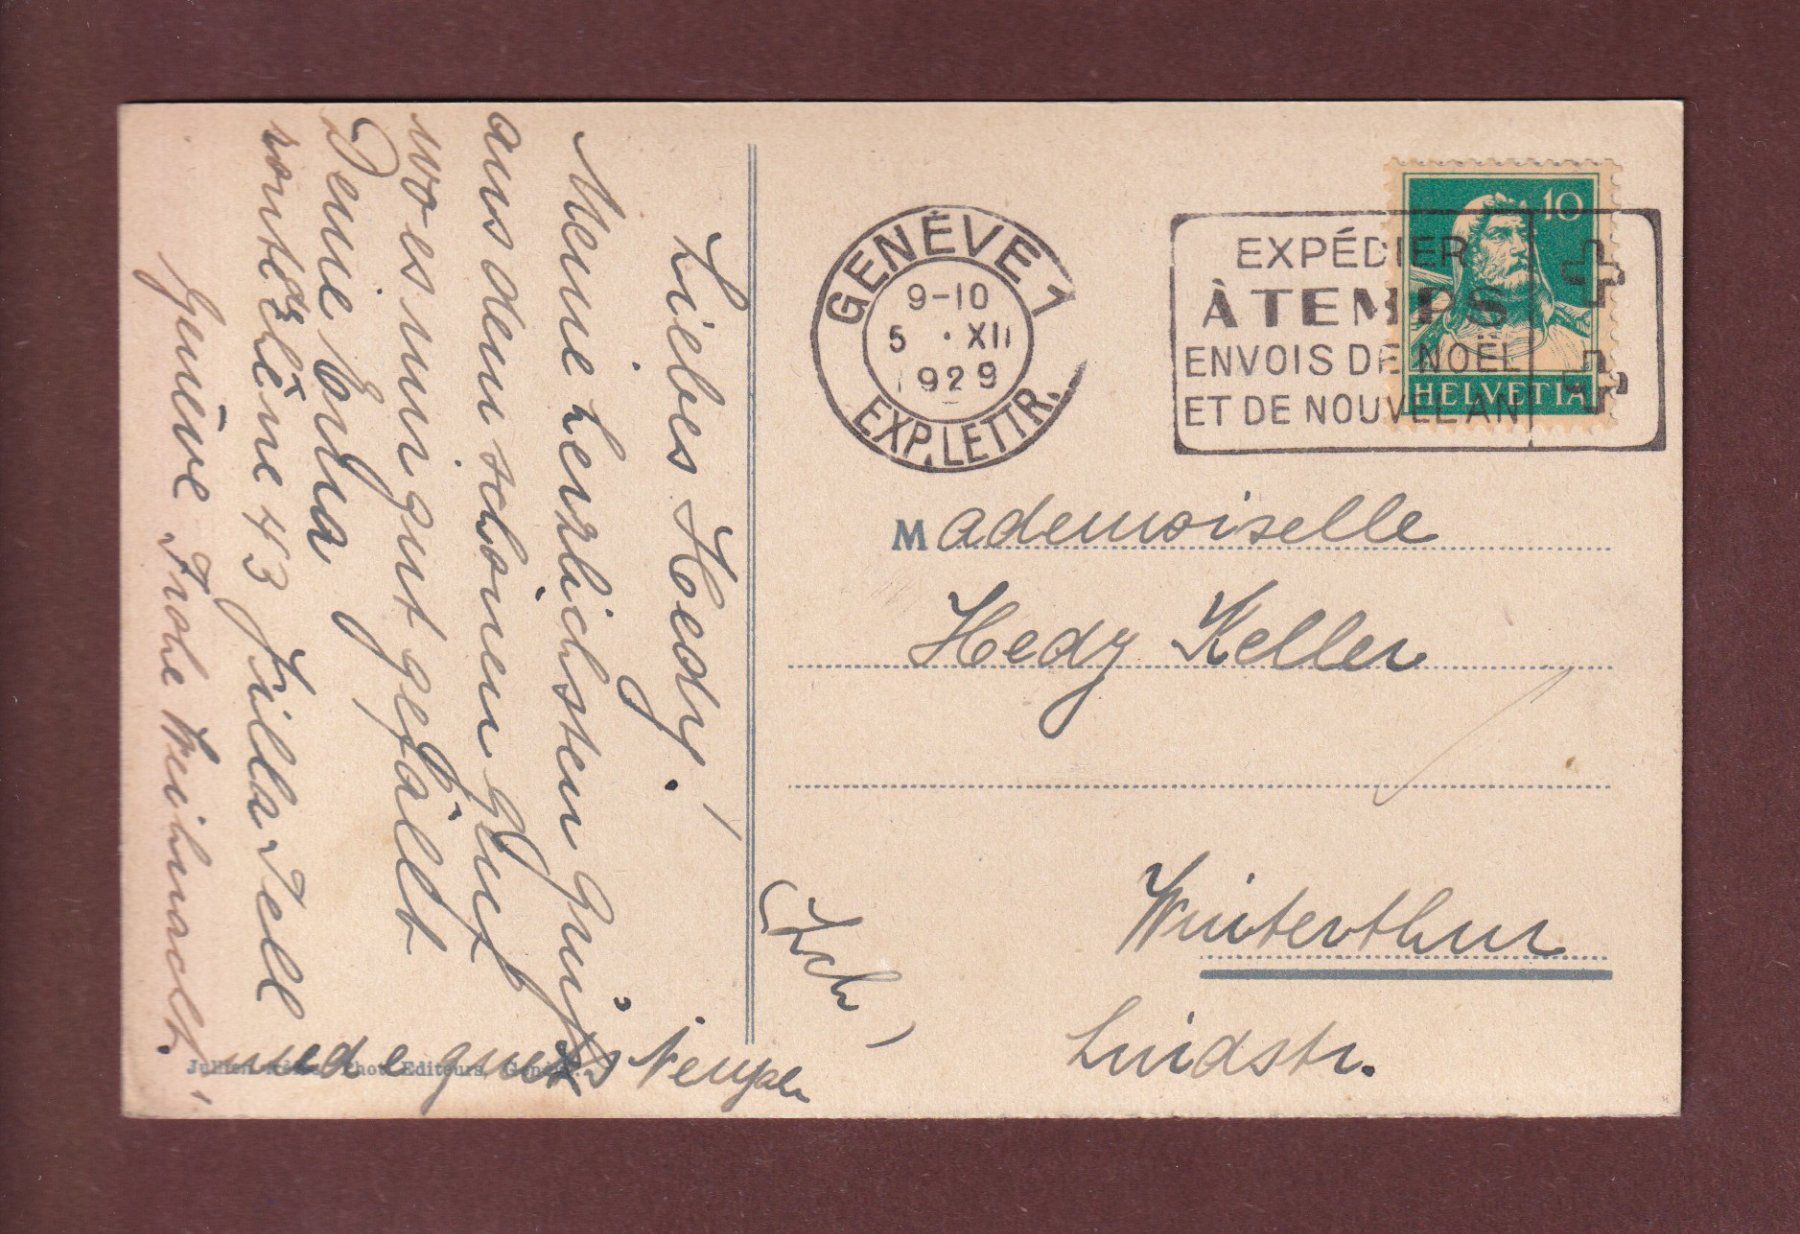 Liebes Hedy!
Meine herzlichsten Grüße
aus dem schönen Genf
wo es mir gut gefällt
Deine Erna
route 43 Villa Tell
Genève Frohe Weihnacht!
GENÈVE 1
9-10
5 · XII
1929
EXP. LETTR.
EXPÉDIER
À TEMPS
ENVOIS DE NOËL
ET DE NOUVEL AN
10
HELVETIA
Mademoiselle
Hedy Keller
Winterthur
Lindstr.
(Zch)
Jullien Phot. Editeurs, Genève